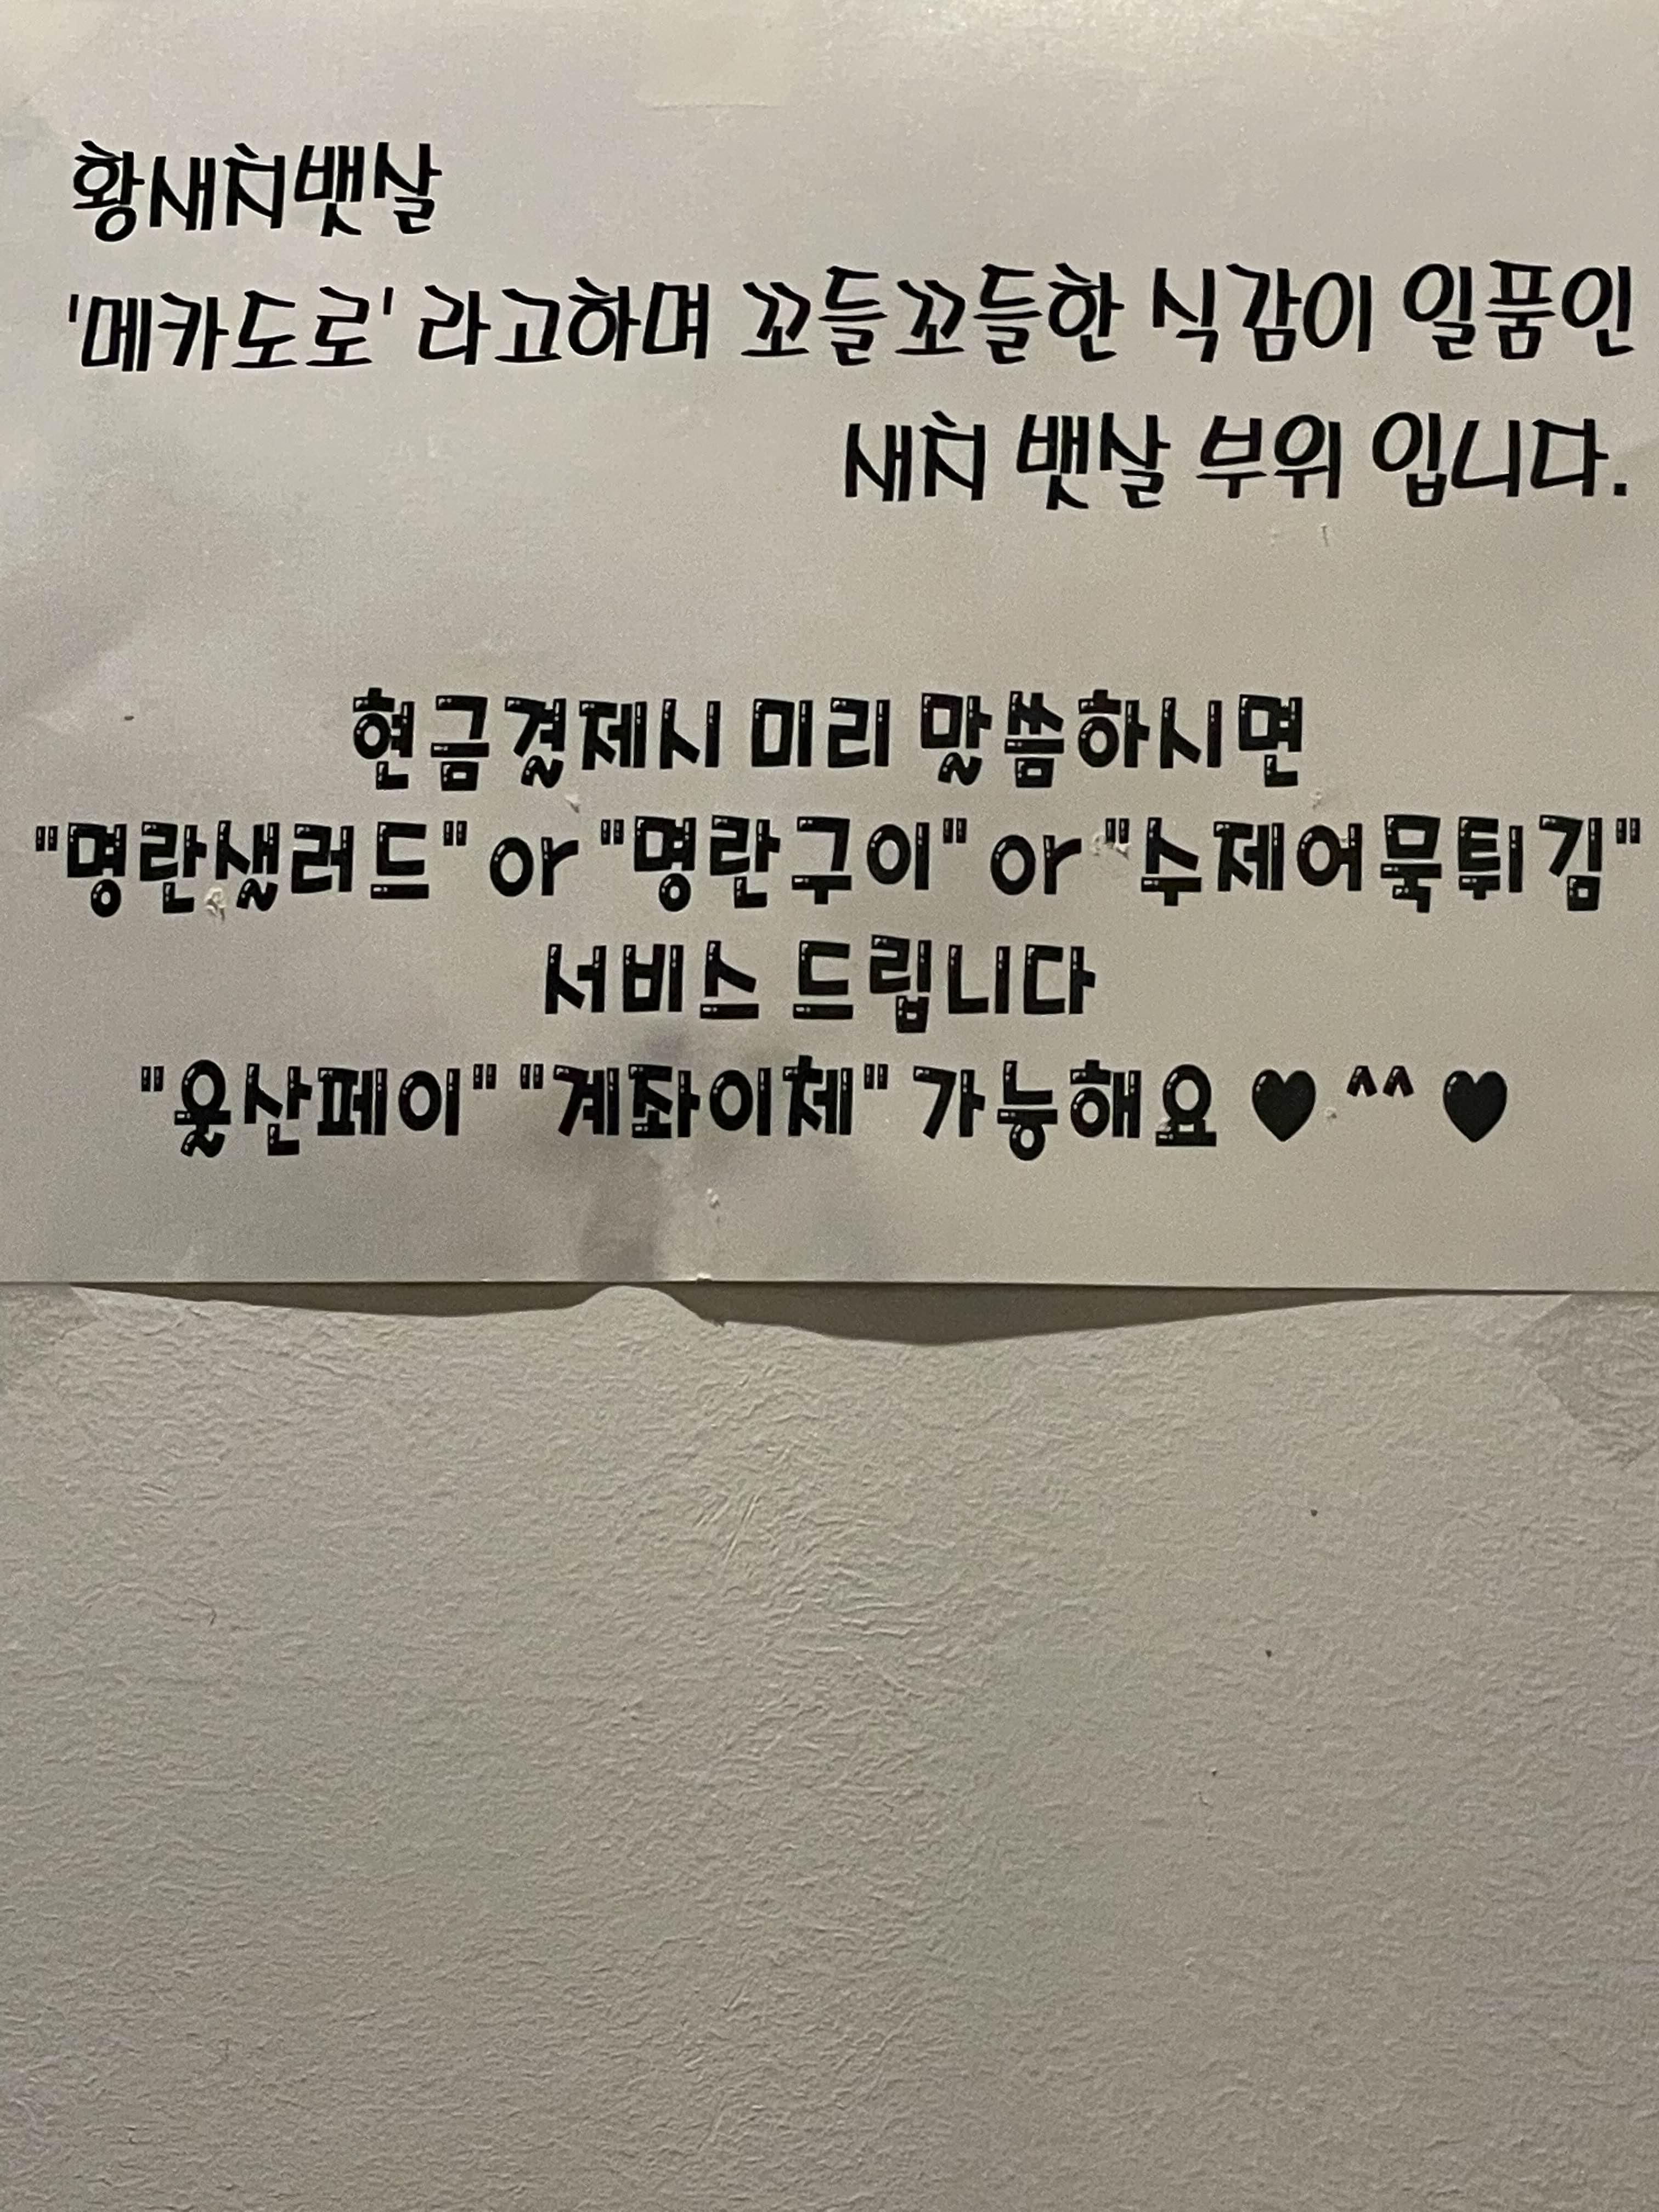 황새치뱃살
'메카도로' 라고하며 꼬들꼬들한 식감이 일품인
새치 뱃살 부위 입니다.
현금결제시 미리 말씀하시면
"명란샐러드" or "명란구이" or "수제어묵튀김"
서비스 드립니다
"울산페이" "계좌이체" 가능해요 ♥ ^^ ♥